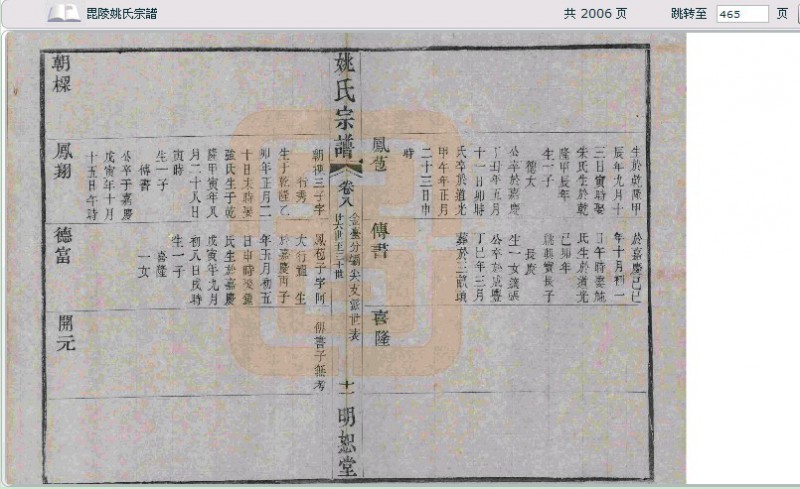 毘陵姚氏宗譜
共 2006 页
跳转至 465 页
生於乾隆甲
辰年九月十
三日寅時娶
朱氏生於乾
隆甲辰年
生一子
德大
公卒於嘉慶
丁丑年五月
十一日卯時
氏卒於道光
甲午年正月
二十三日申
時
於嘉慶己巳
年十月初一
氏生於道光
己卯年
長慶
生一女
公卒於咸豐
丁巳年三月
鳳苞
傳書
喜隆
姚氏宗譜
卷八
明恕堂
朝樑
鳳翔
德富
開元
朝樑三子字
行秀
生于乾隆乙
卯年正月二
十日未時娶
氏生子乾
隆甲寅年八
月二十八日
寅時
生一子
傳書
公卒于嘉慶
戊寅年十月
十五日午時
鳳苞子字阿
大行龍 生
於嘉慶丙子
年五月初五
日申時娶
氏生於嘉慶
戊寅年九月
初八日戌時
生一子
喜隆
一女
傳書子無考